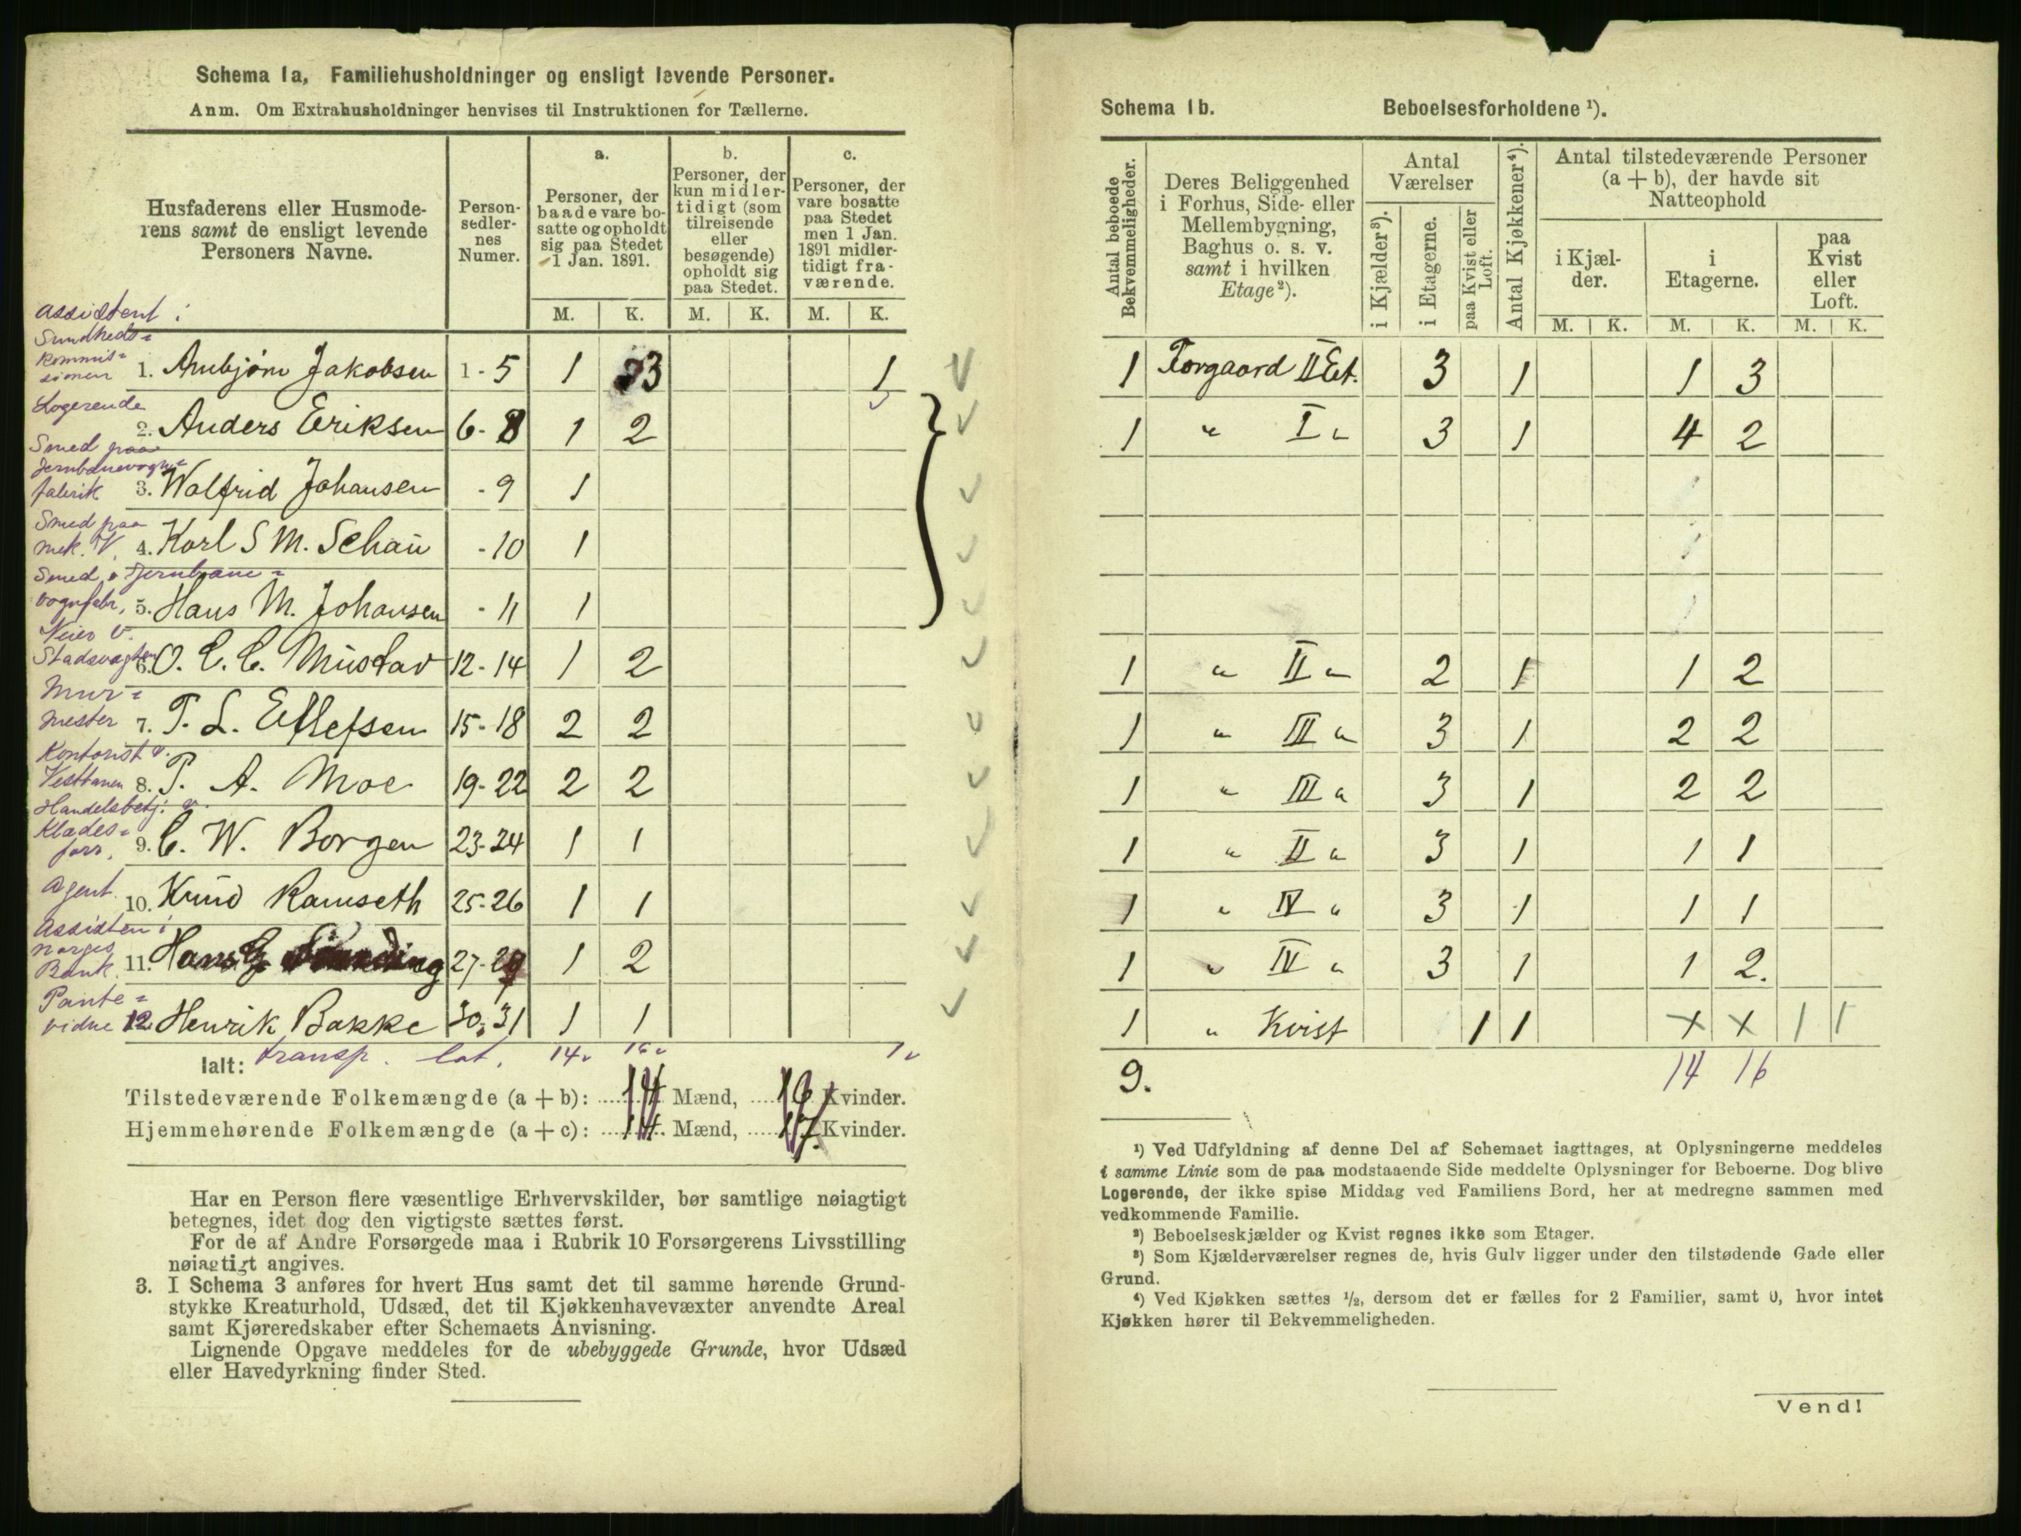 Schema 1a, Familiehusholdninger og ensligt levende Personer.
Anm. Om Extrahusholdninger henvises til Instruktionen for Tællerne.
Husfaderens eller Husmode-
rens samt de ensligt levende
Personers Navne.
Person-
sedler-
nes
Numer.
a.
Personer, der
baade vare bo-
satte og opholdt
sig paa Stedet
1 Jan. 1891.
b.
Personer, der
kun midler-
tidigt (som
tilreisende
eller
besøgende)
opholdt sig
paa Stedet.
c.
Personer, der
vare bosatte
paa Stedet
men 1 Jan.
1891 midler-
tidigt fra-
værende.
M. K. M. K. M. K.
Assistent i
Sundheds=
kommis=
sionen 1. Arnbjørn Jakobsen 1 - 5 1 3 1
Logerende
2. Anders Eriksen 6 - 8 1 2
Smed paa
Jernbanevogn=
fabrik 3. Walfrid Johansen - 9 1
Smed paa
mek. V. 4. Karl S M. Schau - 10 1
Smed, Jernbane=
vognfabr, 5. Hans M. Johansen - 11 1
Veier v.
Stadsvagten 6. O. C. C. Mustav 12 - 14 1 2
Mur=
mester 7. T. L. Ellefsen 15 - 18 2 2
Kontorist v.
Vestbanen 8. P. A. Moe 19 - 22 2 2
Handelsbetj. v.
Klædes=
forr. 9. C. W. Borgen 23 - 24 1 1
Agent. 10. Knud Ramseth 25 - 26 1 1
Assistent i
Norges
Bank. 11. Hans 27 - 29 1 2
Pante=
vidne 12. Henrik Bakke 30 - 31 1 1
Ialt: transp. lat. 14 16 1
Tilstedeværende Folkemængde (a + b): 14 Mænd, 16 Kvinder.
Hjemmehørende Folkemængde (a + c): 14 Mænd, 17 Kvinder.
Har en Person flere væsentlige Erhvervskilder, bør samtlige nøiagtigt
betegnes, idet dog den vigtigste sættes først.
For de af Andre Forsørgede maa i Rubrik 10 Forsørgerens Livsstilling
nøiagtigt angives.
3. I Schema 3 anføres for hvert Hus samt det til samme hørende Grund-
stykke Kreaturhold, Udsæd, det til Kjøkkenhavevæxter anvendte Areal
samt Kjøreredskaber efter Schemaets Anvisning.
Lignende Opgave meddeles for de ubebyggede Grunde, hvor Udsæd
eller Havedyrkning finder Sted.
Schema 1b. Beboelsesforholdene ¹).
Antal beboede
Bekvemmeligheder.
Deres Beliggenhed
i Forhus, Side- eller
Mellembygning,
Baghus o. s. v.
samt i hvilken
Etage ²).
Antal
Værelser
i Kjælder ³).
i Etagerne.
paa Kvist eller
Loft.
Antal Kjøkkener ⁴).
Antal tilstedeværende Personer
(a + b), der havde sit
Natteophold
i Kjæl-
der.
i
Etagerne.
paa
Kvist
eller
Loft.
M. K. M. K. M. K.
1 Forgaard II Et. 3 1 1 3
1 " I " 3 1 4 2
1 " II " 2 1 1 2
1 " III " 3 1 2 2
1 " III " 3 1 2 2
1 " II " 3 1 1 1
1 " IV " 3 1 1 1
1 " IV " 3 1 1 2.
1 " Kvist 1 1 x x 1 1
9. 14 16
¹) Ved Udfyldning af denne Del af Schemaet iagttages, at Oplysningerne meddeles
i samme Linie som de paa modstaaende Side meddelte Oplysninger for Beboerne. Dog blive
Logerende, der ikke spise Middag ved Familiens Bord, her at medregne sammen med
vedkommende Familie.
²) Beboelseskjælder og Kvist regnes ikke som Etager.
³) Som Kjælderværelser regnes de, hvis Gulv ligger under den tilstødende Gade eller
Grund.
⁴) Ved Kjøkken sættes ½, dersom det er fælles for 2 Familier, samt 0, hvor intet
Kjøkken hører til Bekvemmeligheden.
Vend!